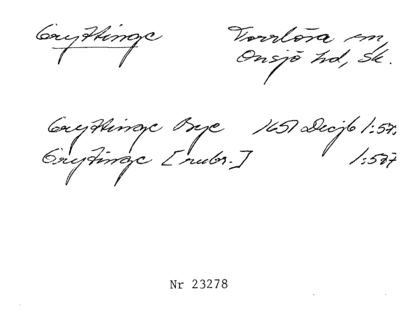 Gryttinge Torrlösa sn
Onsjö hd, Sk.
Gryttinge Bye 1651 Decjb 1:57.
Grytinge [rubr.] 1:577
Nr 23278